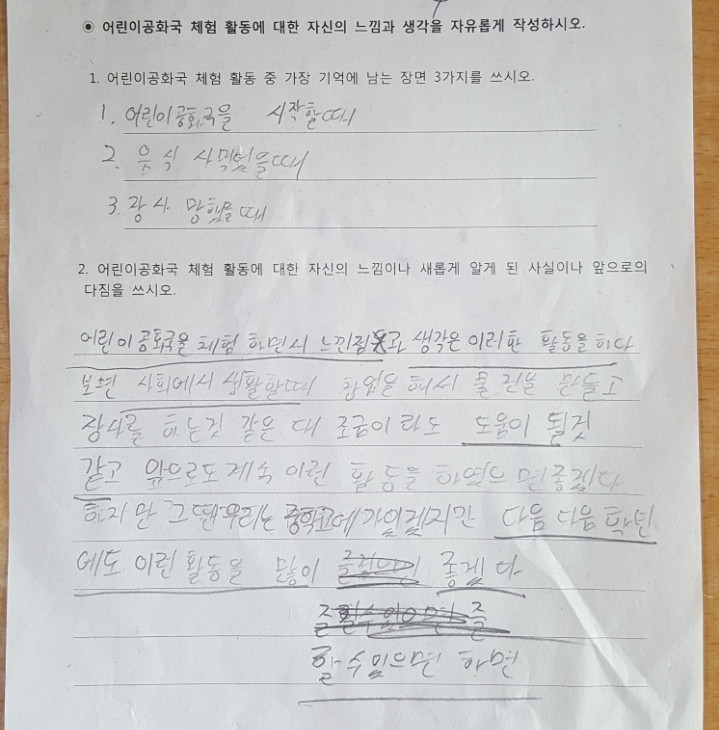 ◉ 어린이공화국 체험 활동에 대한 자신의 느낌과 생각을 자유롭게 작성하시오.
1. 어린이공화국 체험 활동 중 가장 기억에 남는 장면 3가지를 쓰시오.
1. 어린이공화국을 시작할때
2. 음식 사먹었을때
3. 장사 망했을때
2. 어린이공화국 체험 활동에 대한 자신의 느낌이나 새롭게 알게 된 사실이나 앞으로의
다짐을 쓰시오.
어린이공화국을 체험 하면서 느낀점 생각은 이러한 활동을 하다
보면 사회에서 생활할때 창업을 해서 물건을 만들고
장사를 하는것 같은 대 조금이라도 도움이 될것
같고 앞으로도 계속 이런 활동을 하였으면좋겠다
하지만 그땐 우리는 중학교에 가있겠지만 다음 다음 학년
에도 이런 활동을 많이 좋겠다
할수있으면 하면